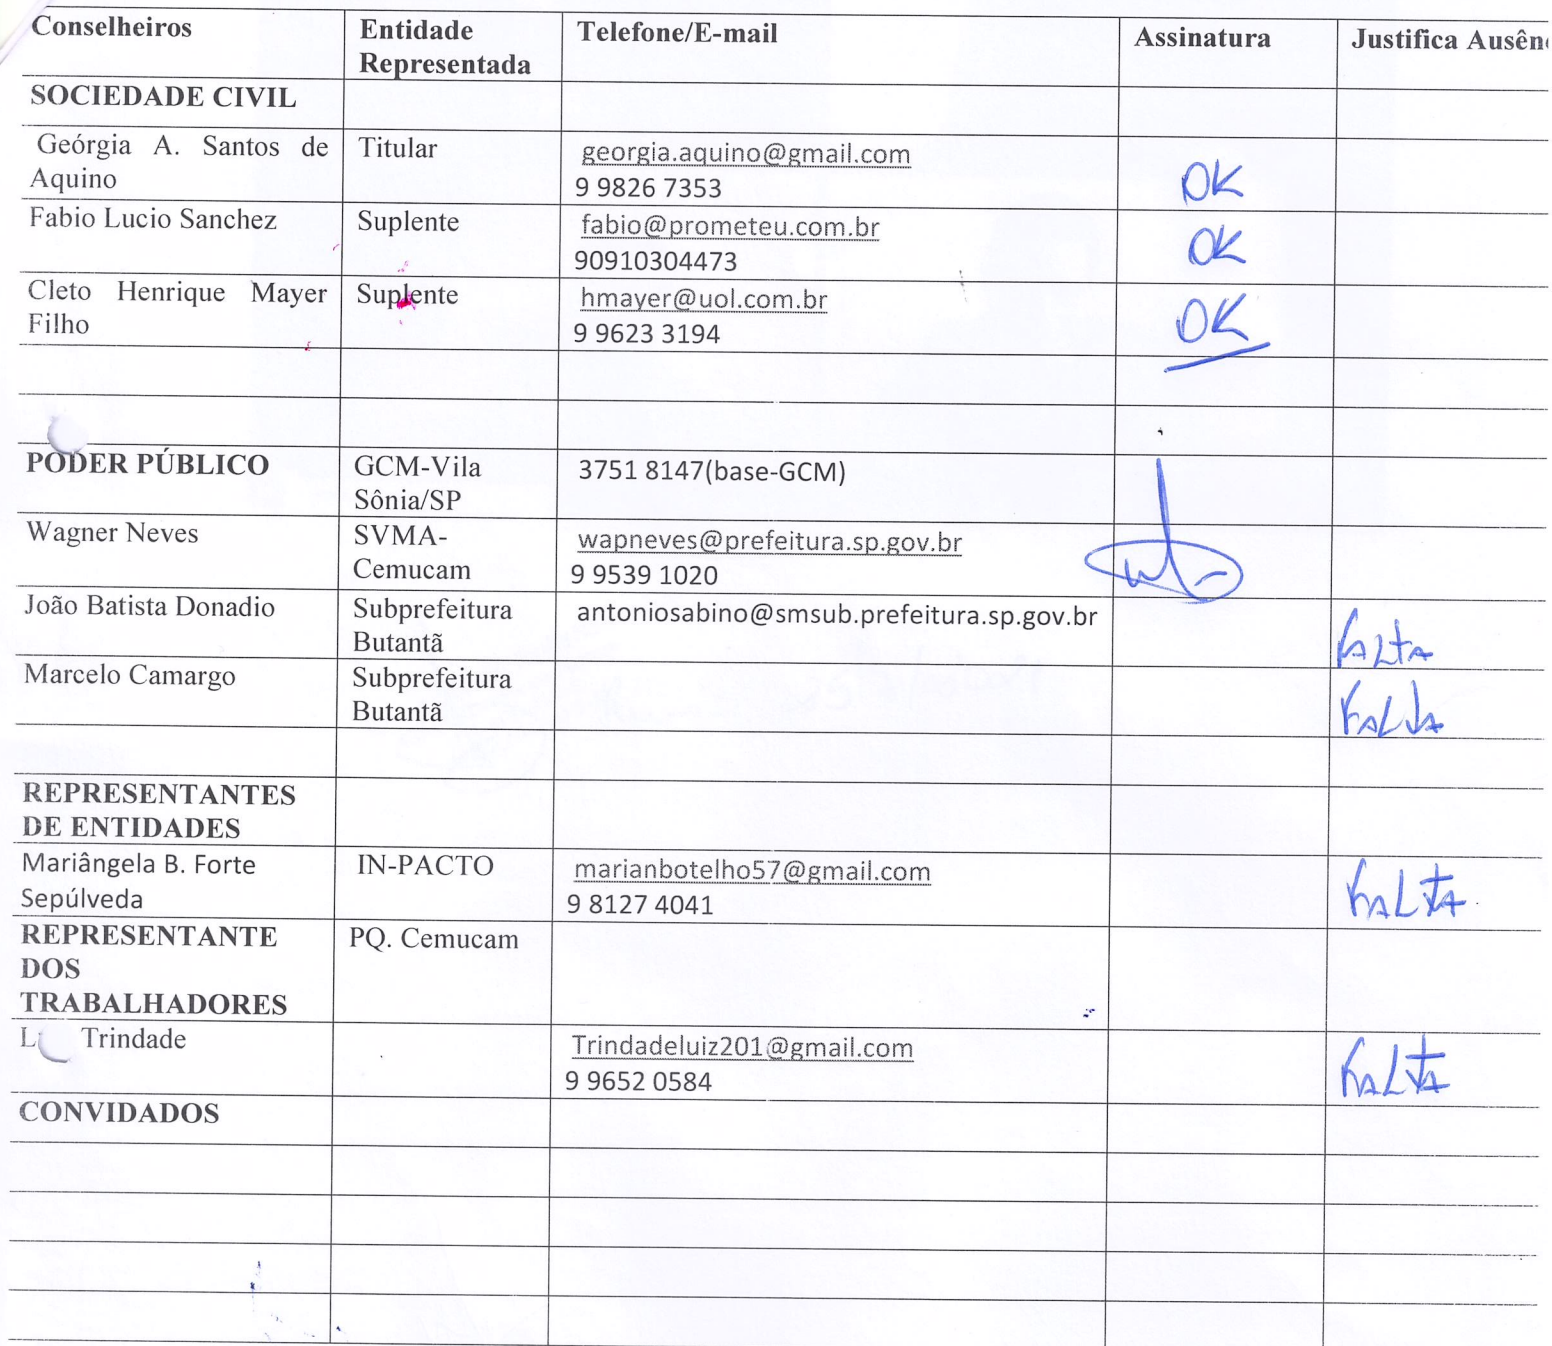 Conselheiros
Entidade
Representada
Telefone/E-mail
Assinatura
Justifica Ausên
SOCIEDADE CIVIL
Geórgia A. Santos de
Aquino
Titular
georgia.aquino@gmail.com
9 9826 7353
OK
Fabio Lucio Sanchez
Suplente
fabio@prometeu.com.br
90910304473
OK
Cleto Henrique Mayer
Filho
Suplente
hmayer@uol.com.br
9 9623 3194
OK
PODER PÚBLICO
GCM-Vila
Sônia/SP
3751 8147(base-GCM)
Wagner Neves
SVMA-
Cemucam
wapneves@prefeitura.sp.gov.br
9 9539 1020
João Batista Donadio
Subprefeitura
Butantã
antoniosabino@smsub.prefeitura.sp.gov.br
FALTA
Marcelo Camargo
Subprefeitura
Butantã
FALTA
REPRESENTANTES
DE ENTIDADES
Mariângela B. Forte
Sepúlveda
IN-PACTO
marianbotelho57@gmail.com
9 8127 4041
FALTA
REPRESENTANTE
DOS
TRABALHADORES
PQ. Cemucam
Trindade
Trindadeluiz201@gmail.com
9 9652 0584
FALTA
CONVIDADOS